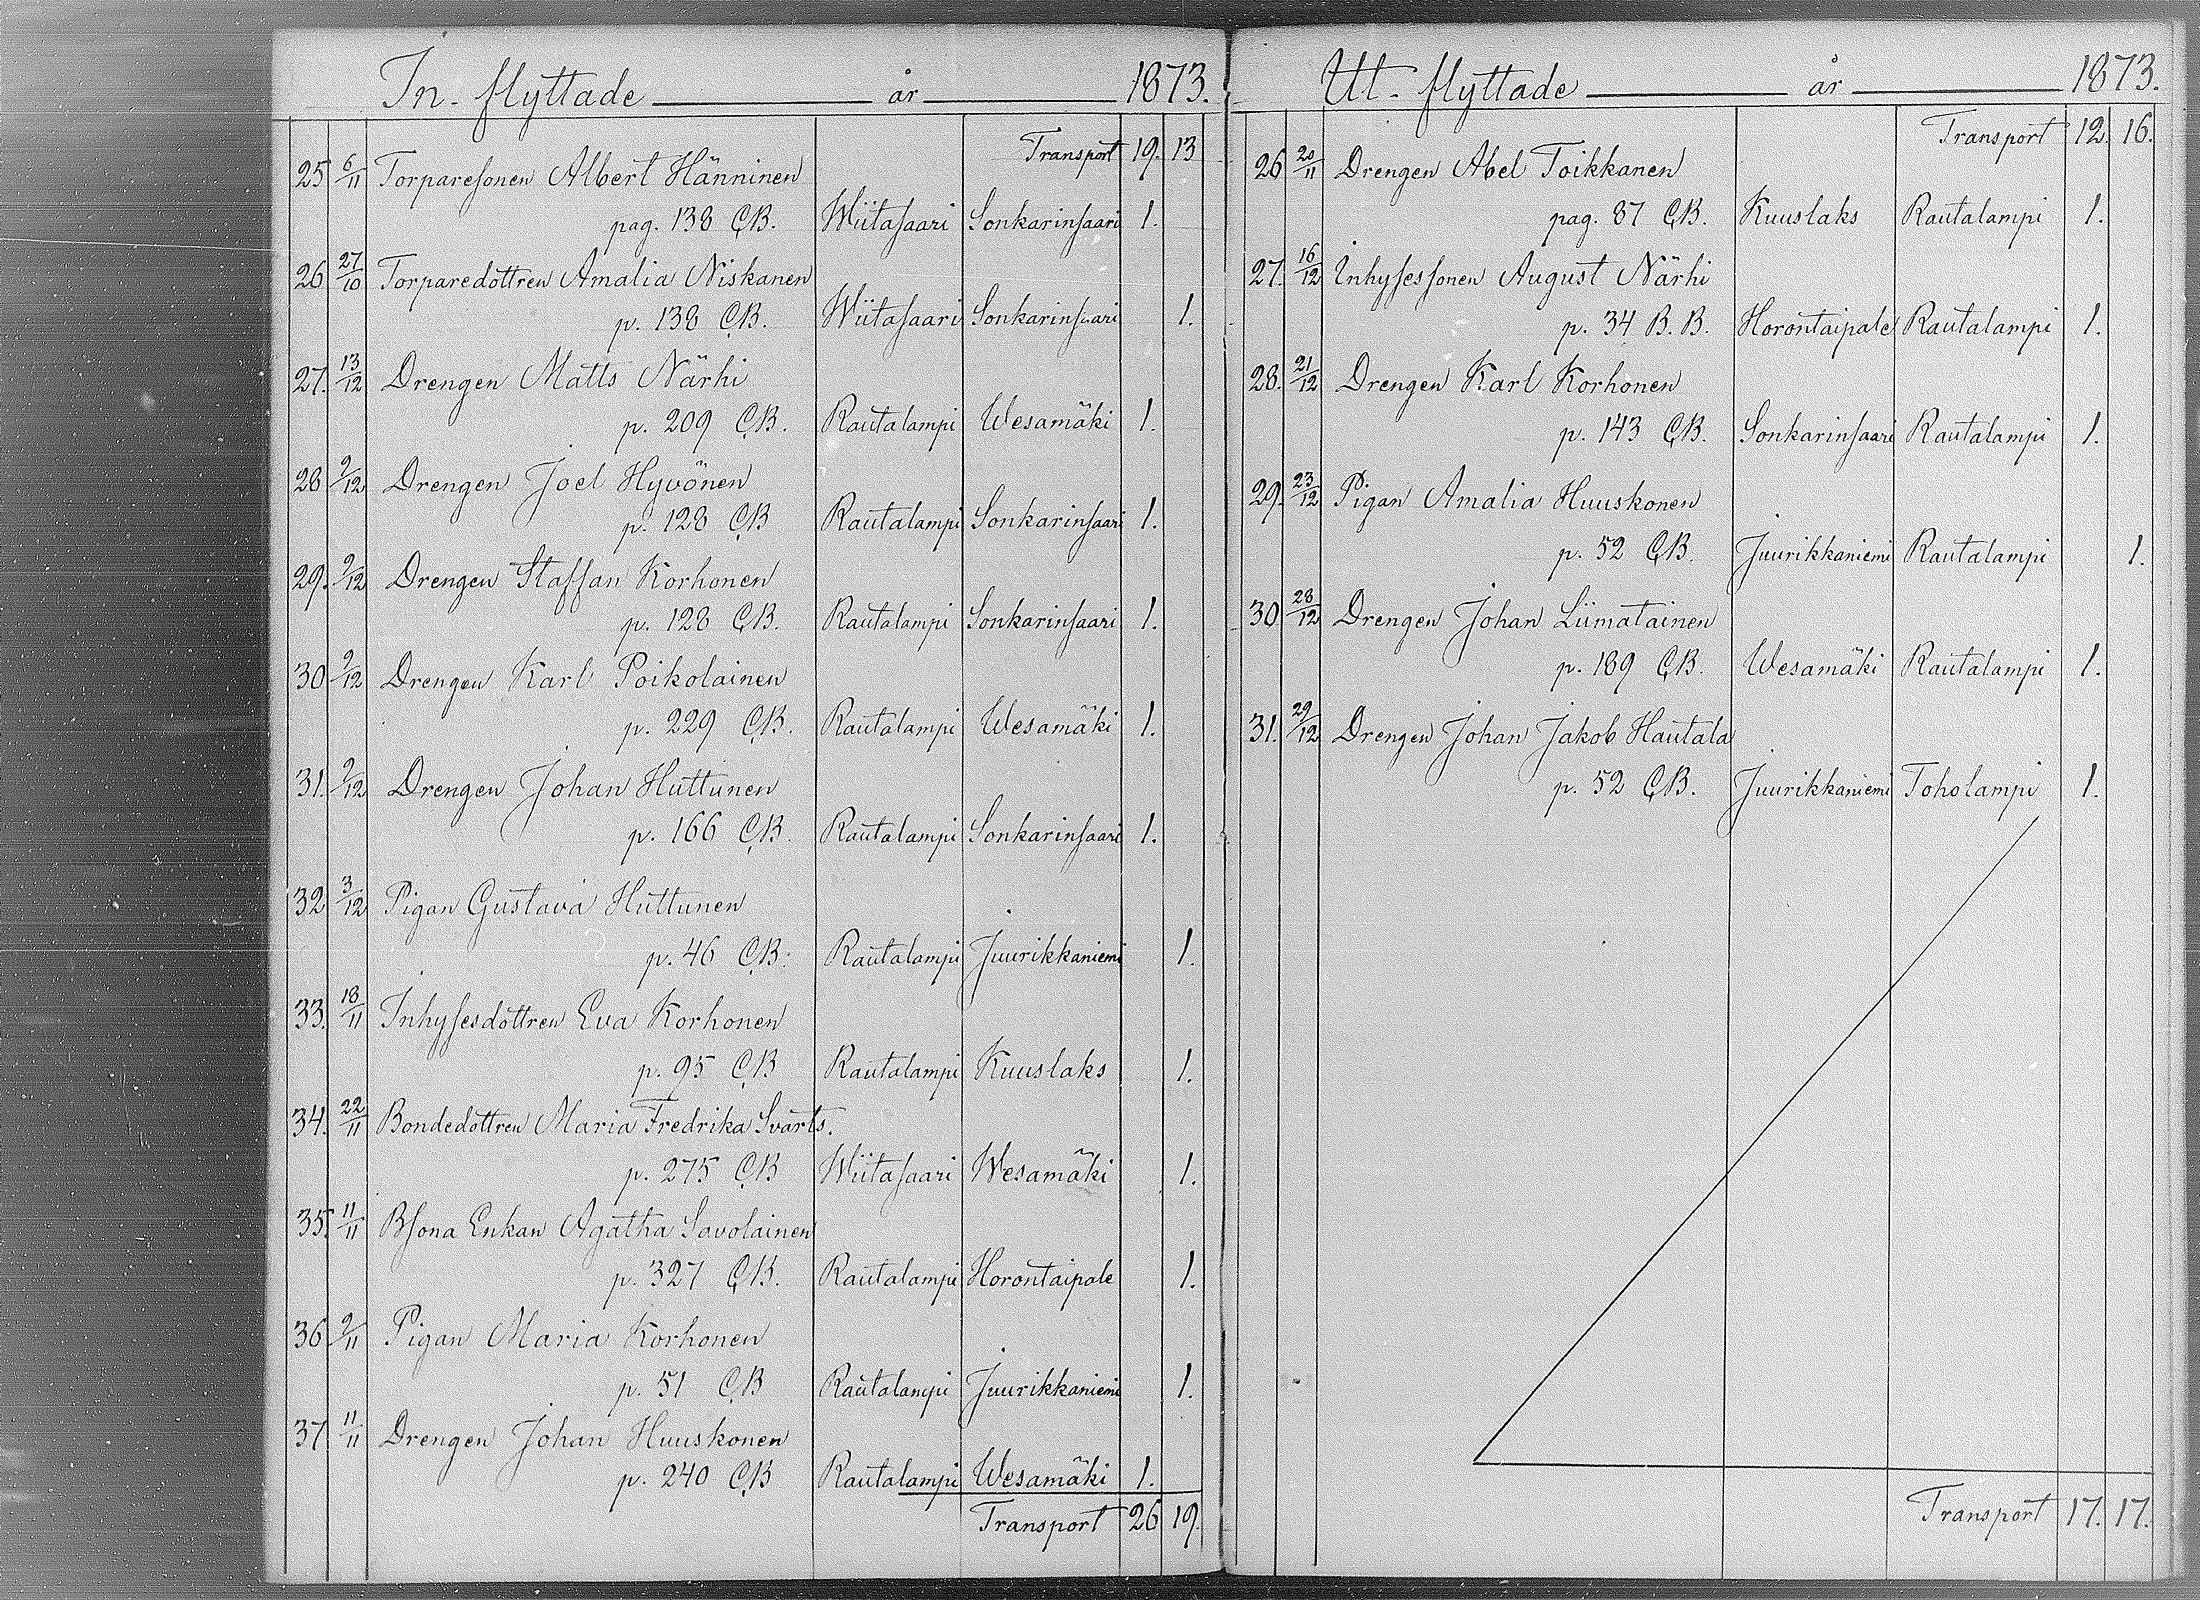 In-flyttade år 1873.
Transport 19. 13
25 6/11 Torparesonen Albert Hänninen
pag. 138 C,B. Wiitasaari Sonkarinsaari 1.
26 27/10 Torparedottren Amalia Niskanen
p. 138 C,B. Wiitasaari Sonkarinsaari 1.
27. 13/12 Drengen Matts Närhi
p. 209 C,B. Rautalampi Wesamäki 1.
28 9/12 Drengen Joel Hyvönen
p. 128 C,B Rautalampi Sonkarinsaari 1.
29. 9/12 Drengen Staffan Korhonen
p. 128 C,B. Rautalampi Sonkarinsaari 1.
30 9/12 Drengen Karl Poikolainen
p. 229 C,B. Rautalampi Wesamäki 1.
31. 9/12 Drengen Johan Huttunen
p. 166 C,B. Rautalampi Sonkarinsaari 1.
32 3/12 Pigan Gustava Huttunen
p. 46 C,B. Rautalampi Juurikkaniemi 1.
33. 18/11 Inhysesdottren Eva Korhonen
p. 95 C,B Rautalampi Kuuslaks 1.
34. 22/11 Bondedottren Maria Fredrika Svarts.
p. 275 C,B Wiitasaari Wesamäki 1.
35. 11/11 Bsona Enkan Agatha Savolainen
p. 327 C,B. Rautalampi Horontaipale 1.
36 9/11 Pigan Maria Korhonen
p. 51 C,B Rautalampi Juurikkaniemi 1.
37. 11/11 Drengen Johan Huuskonen
p. 240 C,B Rautalampi Wesamäki 1.
Transport 26 19.
Ut-flyttade år 1873.
Transport 12. 16.
26 20/11 Drengen Abel Toikkanen
pag. 87 C,B. Kuuslaks Rautalampi 1.
27. 16/12 Inhysessonen August Närhi
p. 34 B.B. Horontaipale Rautalampi 1.
28. 21/12 Drengen Karl Korhonen
p. 143 C,B. Sonkarinsaari Rautalampi 1.
29. 23/12 Pigan Amalia Huuskonen
p. 52 C,B. Juurikkaniemi Rautalampi 1.
30 28/12 Drengen Johan Liimatainen
p. 189 C,B. Wesamäki Rautalampi 1.
31. 29/12 Drengen Johan Jakob Hautala
p. 52 C,B. Juurikkaniemi Toholampi 1.
Transport 17. 17.